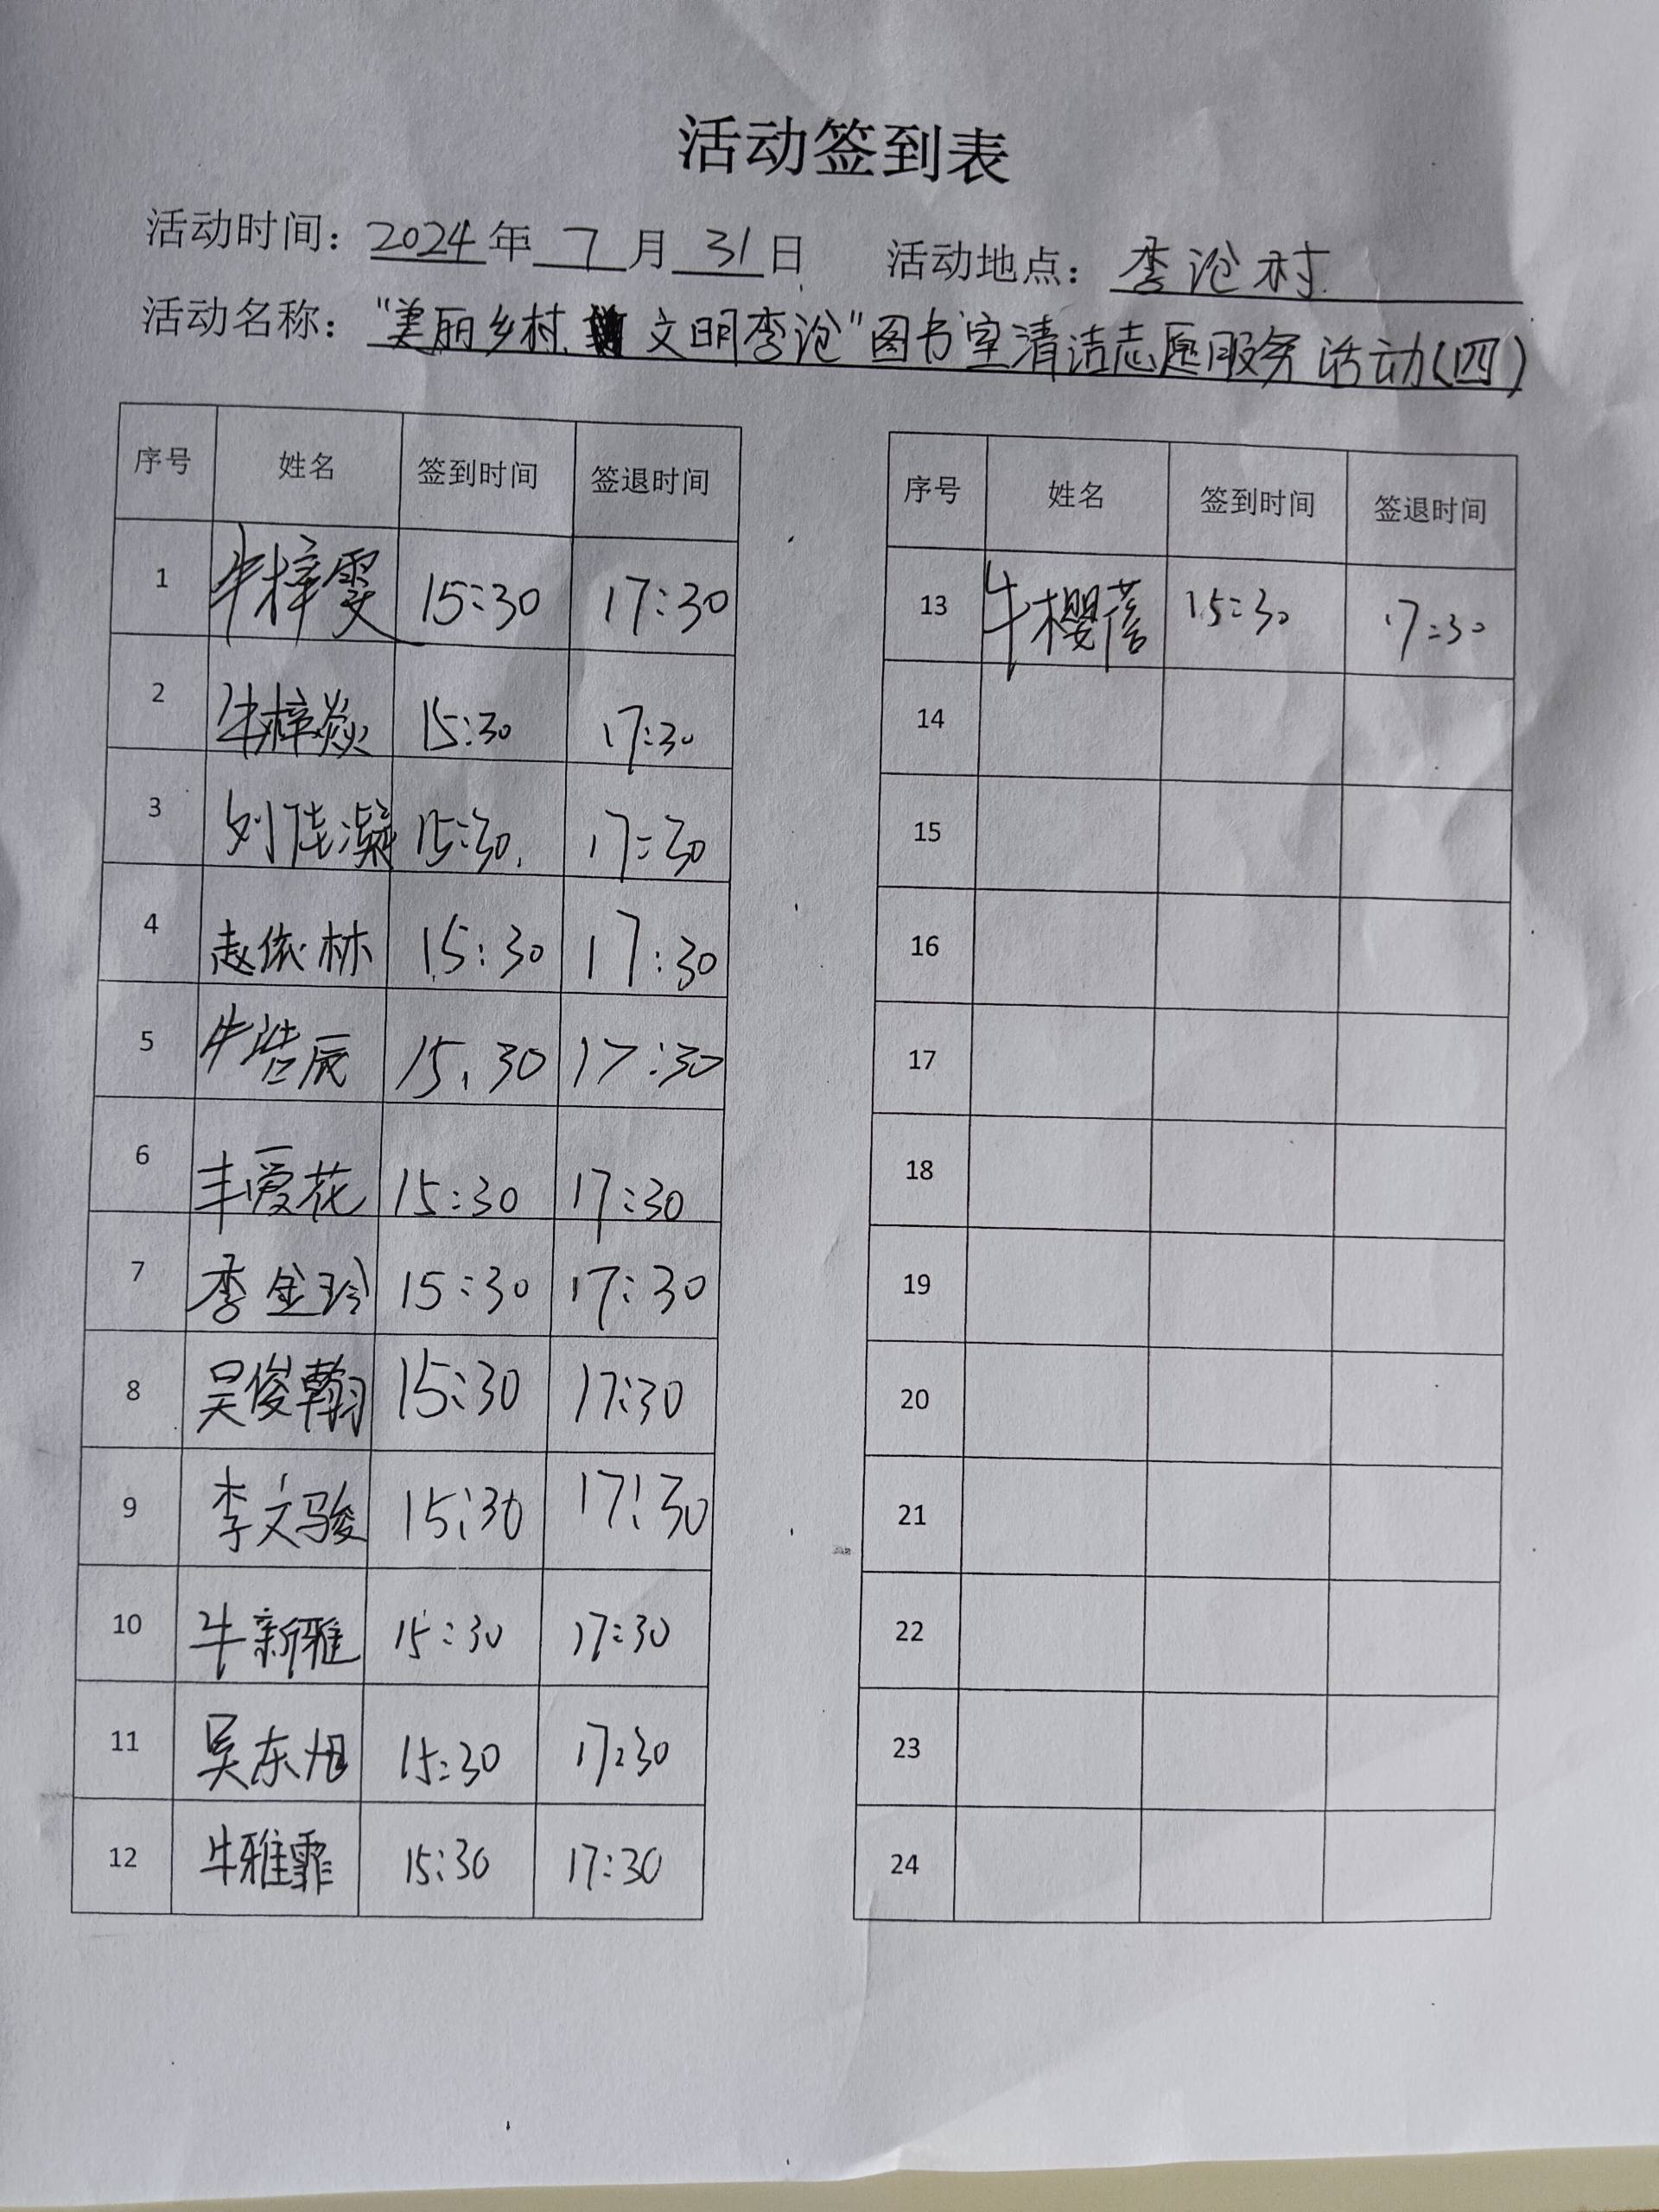 活动签到表
活动时间：2024年7月31日 活动地点：李沧村
活动名称："美丽乡村 文明李沧"图书室清洁志愿服务活动(四)
序号 姓名 签到时间 签退时间
1 牛梓雯 15:30 17:30
2 牛梓焱 15:30 17:30
3 刘佳凝 15:30 17:30
4 赵依林 15:30 17:30
5 牛浩辰 15:30 17:30
6 丰爱花 15:30 17:30
7 李金玲 15:30 17:30
8 吴俊翰 15:30 17:30
9 李文骏 15:30 17:30
10 牛新雅 15:30 17:30
11 吴东旭 15:30 17:30
12 牛雅霏 15:30 17:30
序号 姓名 签到时间 签退时间
13 牛樱蓓 15:30 17:30
14
15
16
17
18
19
20
21
22
23
24